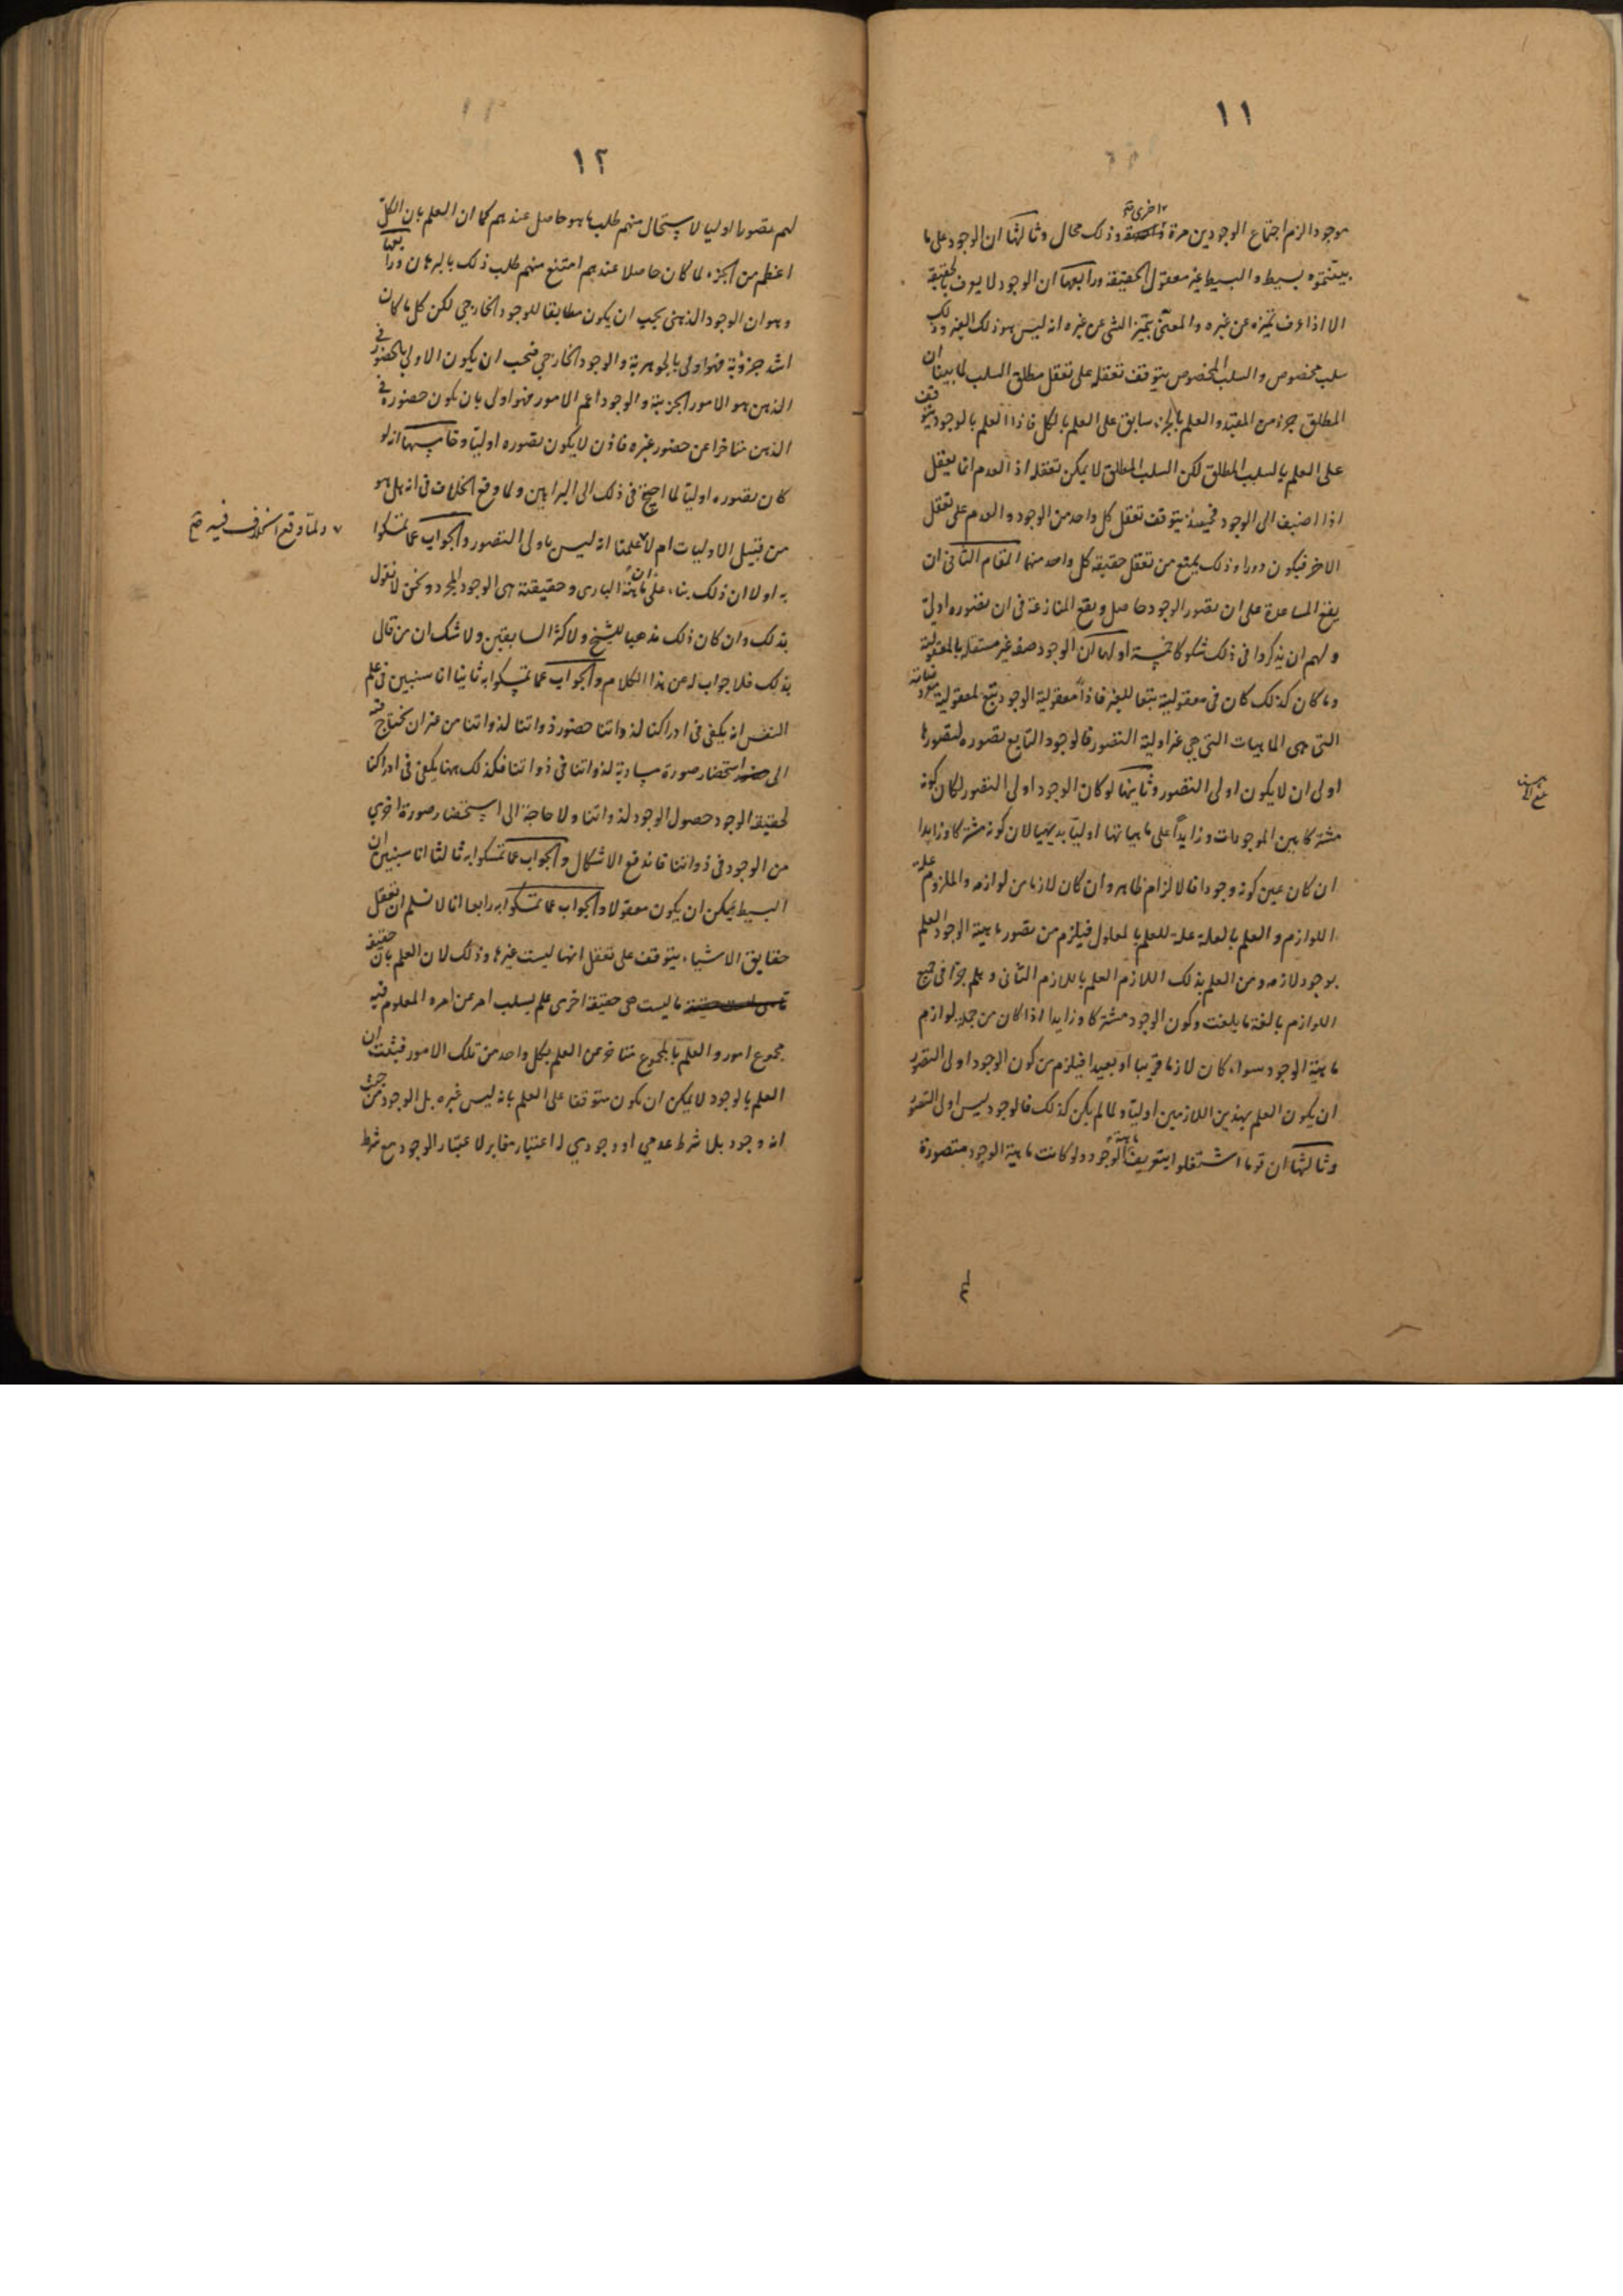 ١١
موجودا لزم اجتماع الوجودين مرة اخرى صح وذلك محال وثالثها ان الوجود على ما
بينتموه بسيط والبسيط غير معقول الحقيقة ورابعها ان الوجود لا يعرف بالحقيقة
الا اذا عرف تميزه عن غيره والمعنى بتميز الشى عن غيره انه ليس هو ذلك الغير وذلك
سلب مخصوص والسلب المخصوص يتوقف تعقله على تعقل مطلق السلب لما بينا ان
المطلق جزء من المقيد والعلم بالجزء سابق على العلم بالكل فاذا العلم بالوجود يتوقف
على العلم بالسلب المطلق لكن السلب المطلق لا يمكن تعقله اذ العدم انما يعقل
اذا اضيف الى الوجود فحينئذ يتوقف تعقل كل واحد من الوجود والعدم على تعقل
الاخر فيكون دورا وذلك يمنع من تعقل حقيقة كل واحد منهما المقام الثانى ان
يقع المساعدة على ان تصور الوجود حاصل ويقع المنازعة فى ان تصوره اولية
ولهم ان يذكروا فى ذلك شكوكا خمسة اولها ان الوجود صفة غير مستقلة بالمعقولية
وما كان كذلك كان فى معقوليته تبعا للغير فاذاً معقولية الوجود يتبع لمعقولية معروضاته
التى هى الماهيات التى هى غير اولية التصور فالوجود التابع تصوره لتصورها
اولى ان لا يكون اولى التصور وثانيها لو كان الوجود اولى التصور لكان كونه
مشتركا بين الموجودات وزايداً على ماهياتها اولياً بديهيا لان كونه مشتركا وزايدا
ان كان عين كونه وجودا فالالزام ظاهر وان كان لازما من لوازمه والملزوم علة
اللوازم والعلم بالعلة علة للعلم بالمعلول فيلزم من تصور ماهية الوجود العلم
بوجود لازمه ومن العلم بذلك اللازم العلم باللازم الثانى وهلم جرا فى جميع
اللوازم بالغة ما بلغت وكون الوجود مشتركا وزايدا اذا كان من جملة لوازم
ماهية الوجود سواء كان لازما قريبا او بعيدا فيلزم من كون الوجود اولى التصور
ان يكون العلم بهذين اللازمين اوليا ولما لم يكن كذلك فالوجود ليس اولى التصور
وثالثها ان قوما اشتغلوا بتعريف ماهية الوجود ولو كانت ماهية الوجود متصورة
١٢
لهم تصورا اوليا لاستحال منهم طلب ما هو حاصل عندهم كما ان العلم بان الكل
اعظم من الجزء لما كان حاصلا عندهم امتنع منهم طلب ذلك بالبرهان ورابعها
وهو ان الوجود الذهنى يجب ان يكون مطابقا للوجود الخارجي لكن كل ما كان
اشد جزؤية فهو اولى بالجوهرية والوجود الخارجي فيجب ان يكون الاولى بالحضور فى
الذهن هو الامور الجزئية والوجود اعم الامور فهو اولى بان يكون حضوره فى
الذهن متاخرا عن حضور غيره فاذن لا يكون تصوره اوليا وخامسها انه لو
كان تصوره اوليا لما احتيج فى ذلك الى البراهين ولما وقع الخلاف فى انه هل هو
من قبيل الاوليات ام لا علمنا انه ليس باولى التصور والجواب عما تمسكوا
ولما وقع الخلاف فيه صح
به اولا ان ذلك بناء على ان ماهية البارى وحقيقته هى الوجود المجرد ونحن لا نقول
بذلك وان كان ذلك مذهبا للشيخ ولاكثر السابقين ولا شك ان من قال
بذلك فلا جواب له عن هذا الكلام والجواب عما تمسكوا به ثانيا انا سنبين فى علم
النفس انه يكفى فى ادراكنا لذواتنا حضور ذواتنا لذواتنا من غير ان نحتاج فيه
الى استحضار صورة مساوية لذواتنا فى ذواتنا فكذلك ههنا يكفى فى ادراكنا
لحقيقة الوجود حصول الوجود لذواتنا ولا حاجة الى استحضار صورة اخرى
من الوجود فى ذواتنا فاندفع الاشكال والجواب عما تمسكوا به ثالثا انا سنبين ان
البسيط يمكن ان يكون معقولا والجواب عما تمسكوا به رابعا انا لا نسلم ان تعقل
حقايق الاشياء يتوقف على تعقل انها ليست غيرها وذلك لان العلم بان حقيقة
ما ليست هى حقيقة اخرى علم بسلب امر عن امر والمعلوم فيه
مجموع امور والعلم بالمجموع متاخر عن العلم بكل واحد من تلك الامور فثبت ان
العلم بالوجود لا يمكن ان يكون متوقفا على العلم بانه ليس غيره بل الوجود من حيث
انه وجود بلا شرط عدمي او وجودي له اعتبار مغاير لاعتبار الوجود مع شرط